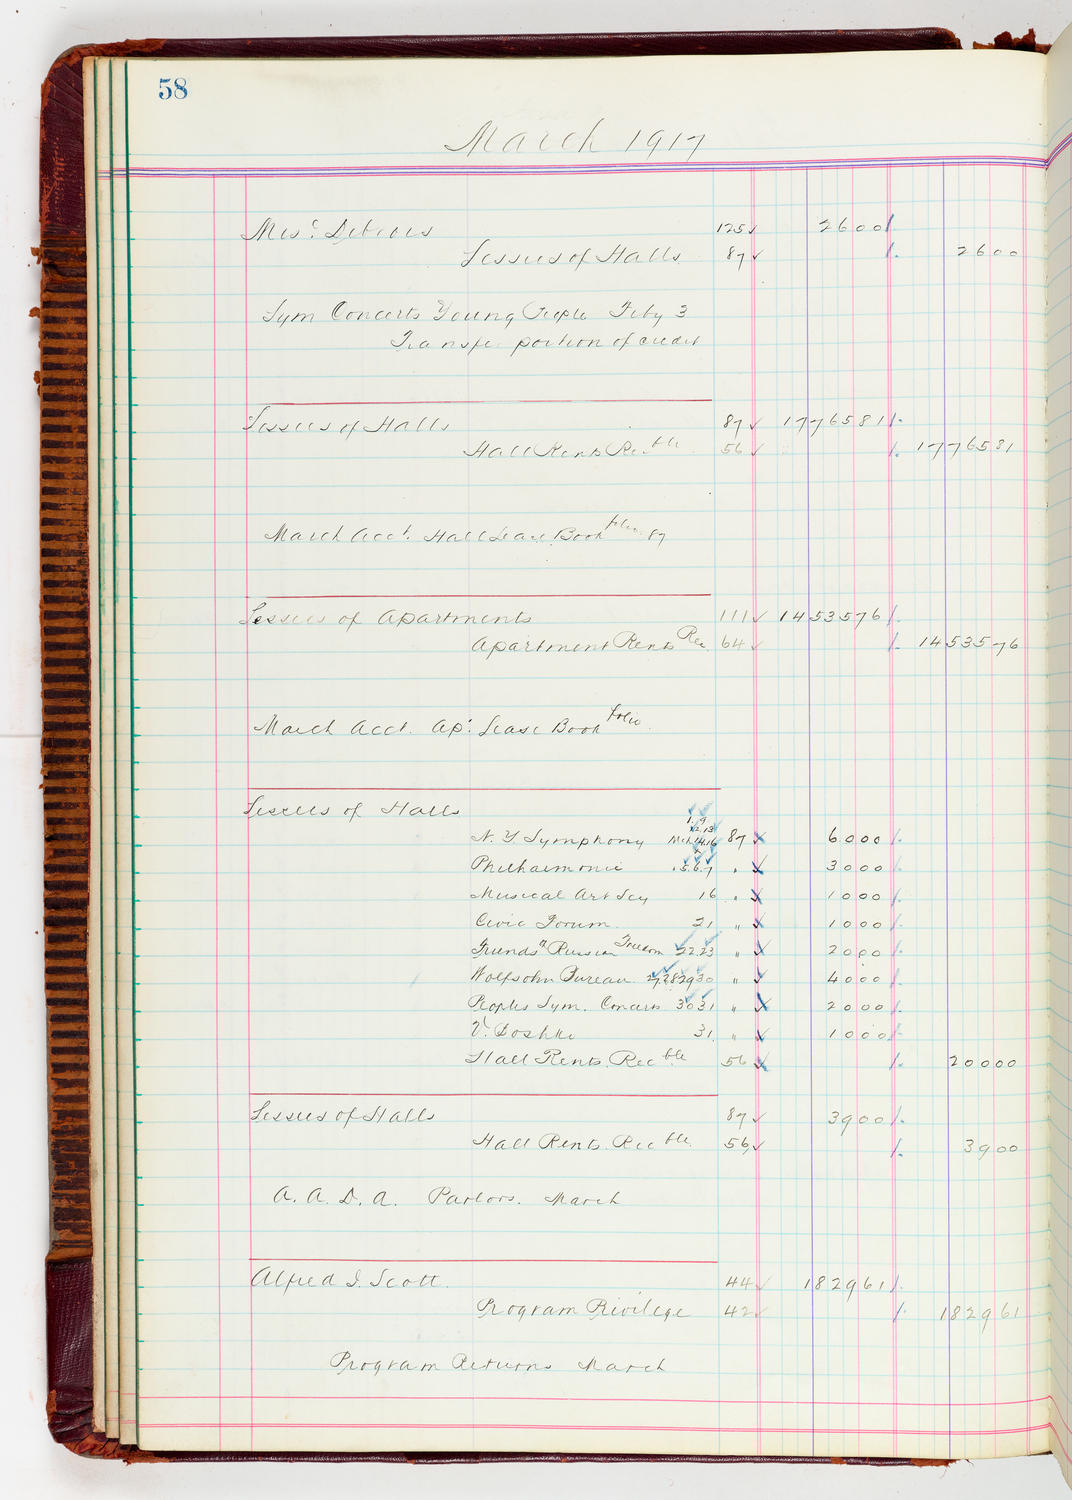 58
March 1917
Misc Debtors 125 ✓ 2600
Lessees of Halls 87 ✓ 2600
Sym Concerts Young People Feby 3
Transfer portion of credit
Lessees of Halls 87 ✓ 1776581
Hall Rents Rec ble 56 ✓ 1776581
March Acct. Hall Lease Book folio 87
Lessees of Apartments 111 ✓ 1453576
Apartment Rents Rec 64 ✓ 1453576
March Acct. Ap: Lease Book folio
Lessees of Halls
1. 9
12. 13
N. Y Symphony Mch 14.16 87 6000
Philharmonic 5.6.7 " 3000
Musical Art Scy 16 " 1000
Civic Forum 21 " 1000
Friends Russian Freedom 22.23 " 2000
Wolfsohn Bureau 27.28 29 30 " 4000
Peoples Sym. Concerts 30 31 " 2000
V. Doshki 31 " 1000
Hall Rents Rec ble 56 20000
Lessees of Halls 87 ✓ 3900
Hall Rents Rec ble 56 ✓ 3900
A. A. D. A. Parlors. March
Alfred I. Scott 44 ✓ 182961
Program Privilege 42 ✓ 182961
Program Returns March